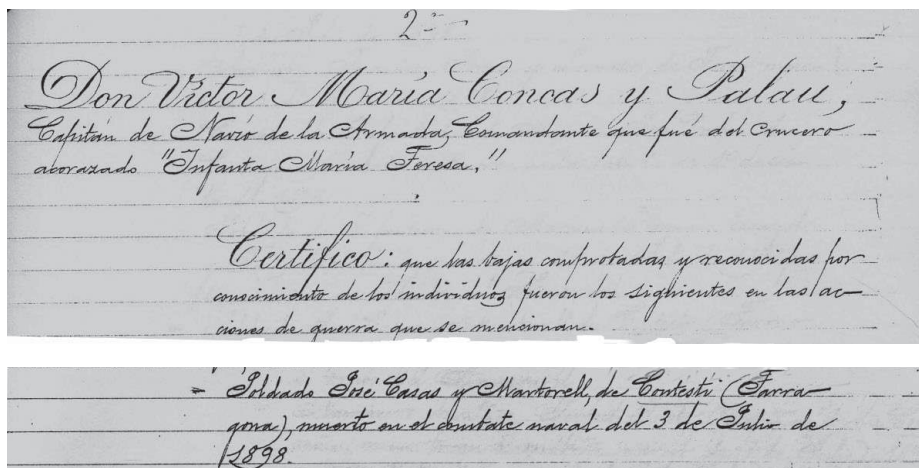 2ª
Don Victor María Concas y Palau,
Capitán de Navío de la Armada, Comandante que fué del Crucero
acorazado "Infanta María Teresa,"
Certifico: que las bajas comprobadas y reconocidas por
conocimiento de los individuos fueron los siguientes en las ac-
ciones de guerra que se mencionan.
= Soldado José Casas y Martorell, de Contestí (Tarra-
gona), muerto en el combate naval del 3 de Julio de
1898.